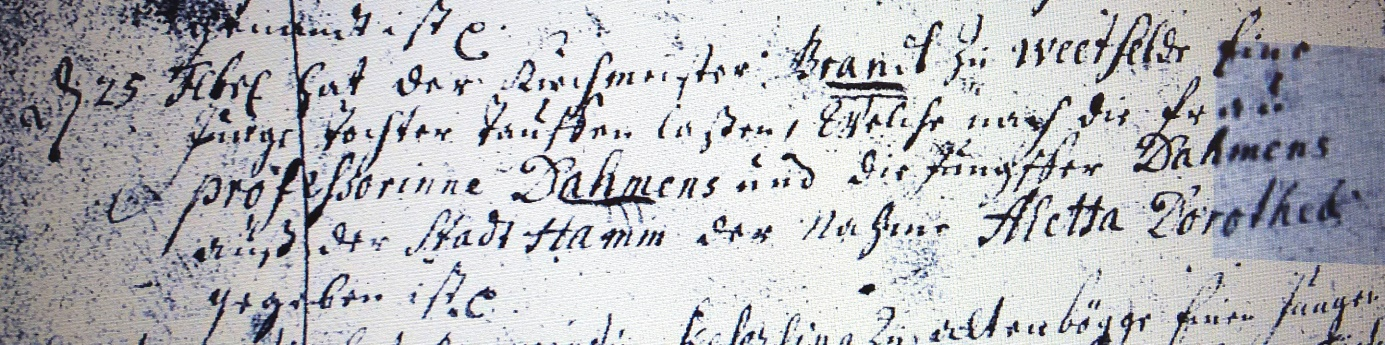 genandt ist
25 Febr hat der Kirchmeister Brandt zu weetfelde Eine
junge tochter tauffen laßen, Welche nach die frau
professorinne Dahmens und die Jungffer Dahmens
auß der Stadt Hamm der Nahme Aletta Dorothea
gegeben ist
zu altenbögge Einen jungen